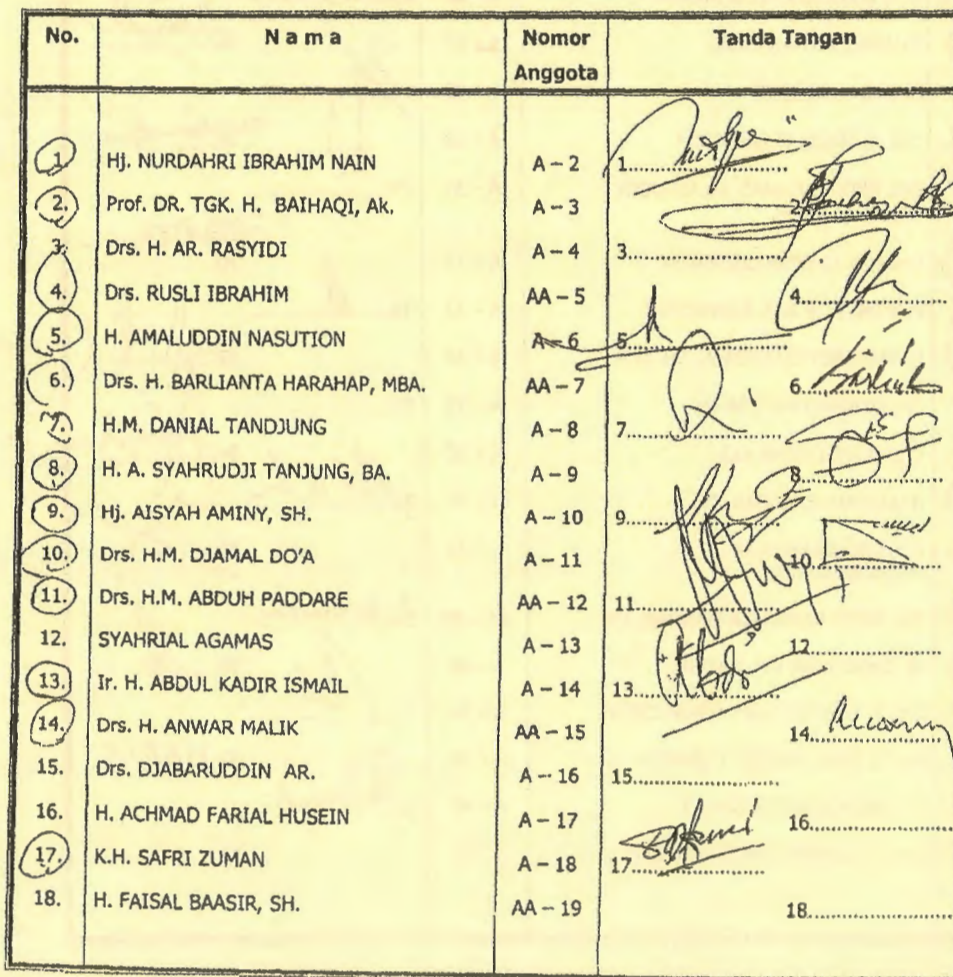 No. N a m a Nomor Anggota Tanda Tangan
1. Hj. NURDAHRI IBRAHIM NAIN A – 2 1.
2. Prof. DR. TGK. H. BAIHAQI, Ak. A – 3 2.
3. Drs. H. AR. RASYIDI A – 4 3.
4. Drs. RUSLI IBRAHIM AA – 5 4.
5. H. AMALUDDIN NASUTION A – 6 5.
6. Drs. H. BARLIANTA HARAHAP, MBA. AA – 7 6.
7. H.M. DANIAL TANDJUNG A – 8 7.
8. H. A. SYAHRUDJI TANJUNG, BA. A – 9 8.
9. Hj. AISYAH AMINY, SH. A – 10 9.
10. Drs. H.M. DJAMAL DO'A A – 11 10.
11. Drs. H.M. ABDUH PADDARE AA – 12 11.
12. SYAHRIAL AGAMAS A – 13 12.
13. Ir. H. ABDUL KADIR ISMAIL A – 14 13.
14. Drs. H. ANWAR MALIK AA – 15 14.
15. Drs. DJABARUDDIN AR. A – 16 15.
16. H. ACHMAD FARIAL HUSEIN A – 17 16.
17. K.H. SAFRI ZUMAN A – 18 17.
18. H. FAISAL BAASIR, SH. AA – 19 18.